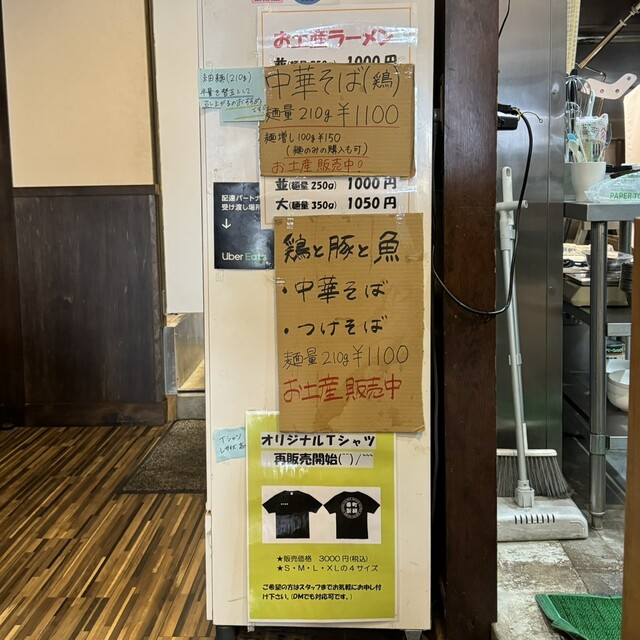 お土産ラーメン
1000円
中華そば(鶏)
麺量 210g ¥1100
麺増し100g ¥150
(麺のみの購入も可)
お土産販売中!
細麺(210g)
並(麺量 250g) 1000円
大(麺量 350g) 1050円
配達パートナー
受け渡し場所
↓
Uber Eats
鶏と豚と魚
・中華そば
・つけそば
麺量210g ¥1100
お土産 販売中
Tシャツ
オリジナルTシャツ
再販売開始(^^)/~~~
★販売価格 3000円(税込)
★S・M・L・XLの4サイズ
ご希望の方はスタッフまでお気軽にお申し付
け下さい。(DMでも対応可です。)
PAPER TO